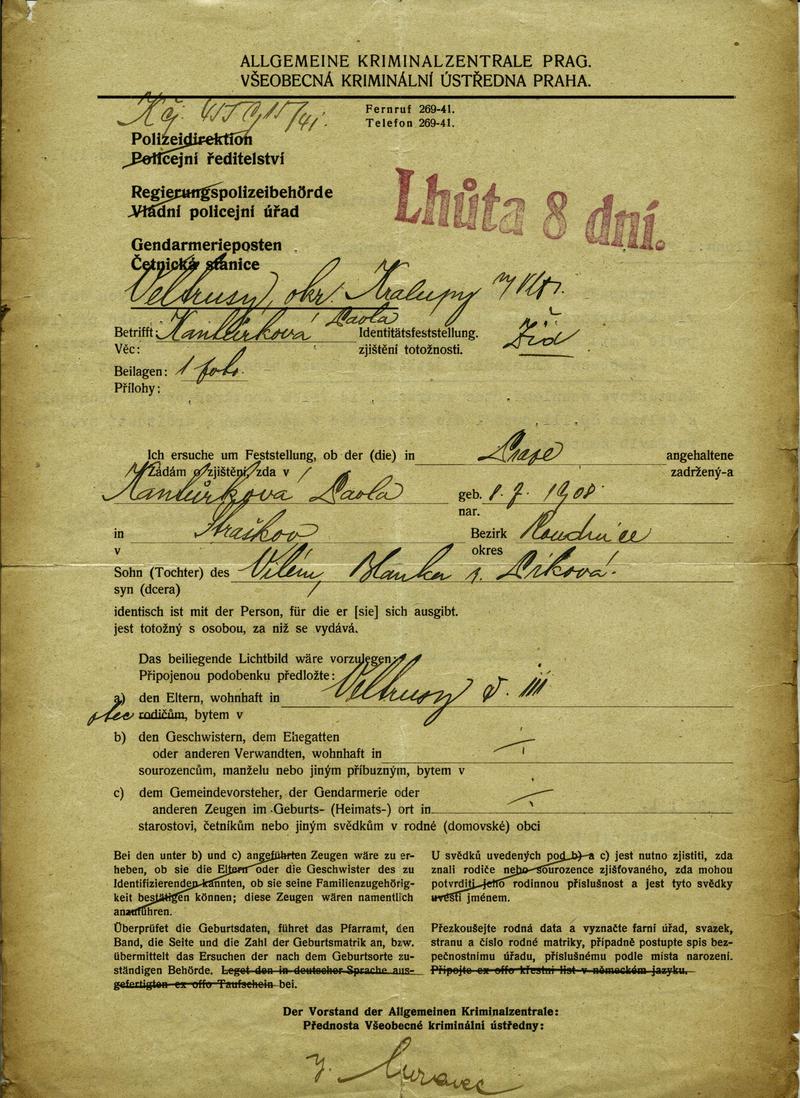 ALLGEMEINE KRIMINALZENTRALE PRAG.
VŠEOBECNÁ KRIMINÁLNÍ ÚSTŘEDNA PRAHA.
Fernruf 269-41.
Telefon 269-41.
Polizeidirektion
Policejní ředitelství
Regierungspolizeibehörde
Vládní policejní úřad
Lhůta 8 dní.
Gendarmerieposten
Četnická stanice
Veltrusy, okr. Kralupy n/Vlt.
Betrifft: Kantůrková Paola Identitätsfeststellung. Žid
Věc: zjištění totožnosti.
Beilagen: 1 foto.
Přílohy:
Ich ersuche um Feststellung, ob der (die) in Praze angehaltene
Žádám o zjištění, zda v zadržený-a
Kantůrková Paola geb. 1908
nar.
in Straškov Bezirk Roudnice
v okres
Sohn (Tochter) des Vilém, Blanka r. Pírková.
syn (dcera)
identisch ist mit der Person, für die er [sie] sich ausgibt.
jest totožný s osobou, za niž se vydává.
Das beiliegende Lichtbild wäre vorzulegen:
Připojenou podobenku předložte:
a) den Eltern, wohnhaft in Veltrusy č. III
otec rodičům, bytem v
b) den Geschwistern, dem Ehegatten
oder anderen Verwandten, wohnhaft in
sourozencům, manželu nebo jiným příbuzným, bytem v
c) dem Gemeindevorsteher, der Gendarmerie oder
anderen Zeugen im Geburts- (Heimats-) ort in
starostovi, četníkům nebo jiným svědkům v rodné (domovské) obci
Bei den unter b) und c) angeführten Zeugen wäre zu er-
heben, ob sie die Eltern oder die Geschwister des zu
Identifizierenden kannten, ob sie seine Familienzugehörig-
keit bestätigen können; diese Zeugen wären namentlich
anzuführen.
Überprüfet die Geburtsdaten, führet das Pfarramt, den
Band, die Seite und die Zahl der Geburtsmatrik an, bzw.
übermittelt das Ersuchen der nach dem Geburtsorte zu-
ständigen Behörde. Leget den in deutscher Sprache aus-
gefertigten ex offo Taufschein bei.
U svědků uvedených pod b) a c) jest nutno zjistiti, zda
znali rodiče nebo sourozence zjišťovaného, zda mohou
potvrditi jeho rodinnou příslušnost a jest tyto svědky
uvésti jménem.
Přezkoušejte rodná data a vyznačte farní úřad, svazek,
stranu a číslo rodné matriky, případně postupte spis bez-
pečnostnímu úřadu, příslušnému podle místa narození.
Připojte ex offo křestní list v německém jazyku.
Der Vorstand der Allgemeinen Kriminalzentrale:
Přednosta Všeobecné kriminální ústředny: